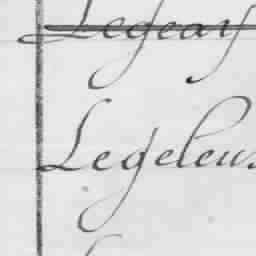 Legeay
Legeleux